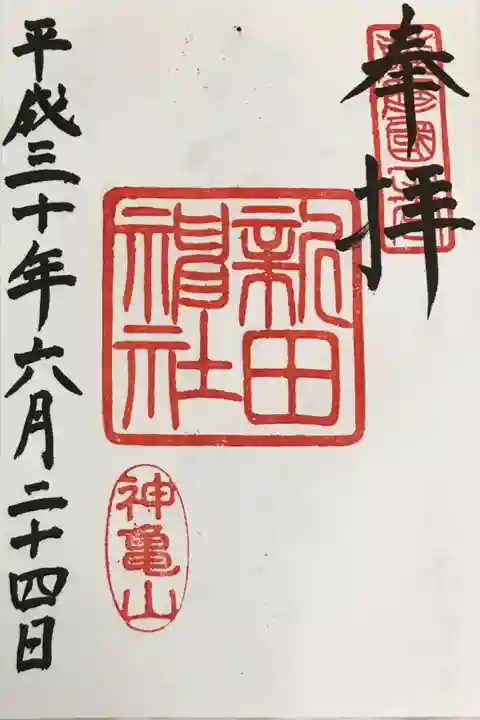 奉拝
新田
神社
神亀山
平成三十年六月二十四日